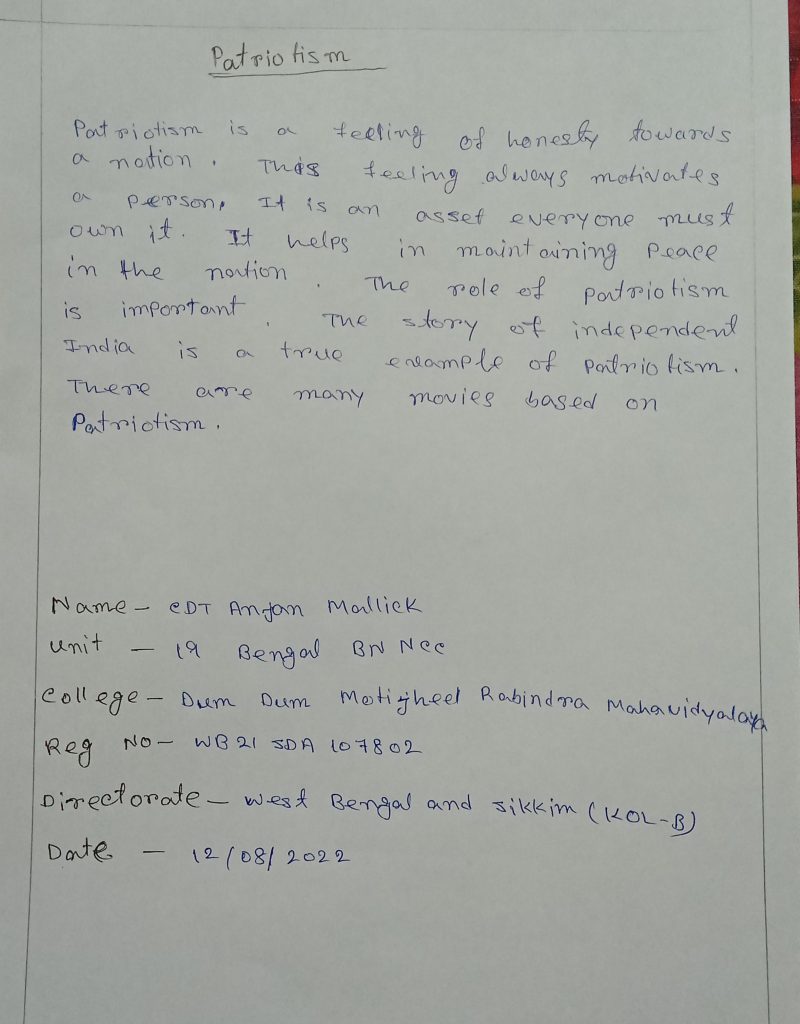 Patriotism
Patriotism is a feeling of honesty towards
a nation. This feeling always motivates
a person, It is an asset everyone must
own it. It helps in maintaining Peace
in the nation. The role of patriotism
is important. The story of independent
India is a true example of patriotism.
There are many movies based on
Patriotism.
Name - CDT Anjan Mallick
Unit - 19 Bengal BN NCC
College - Dum Dum Motijheel Rabindra Mahavidyalaya
Reg No - WB 21 SDA 107802
Directorate - West Bengal and Sikkim (KOL-B)
Date - 12/08/2022